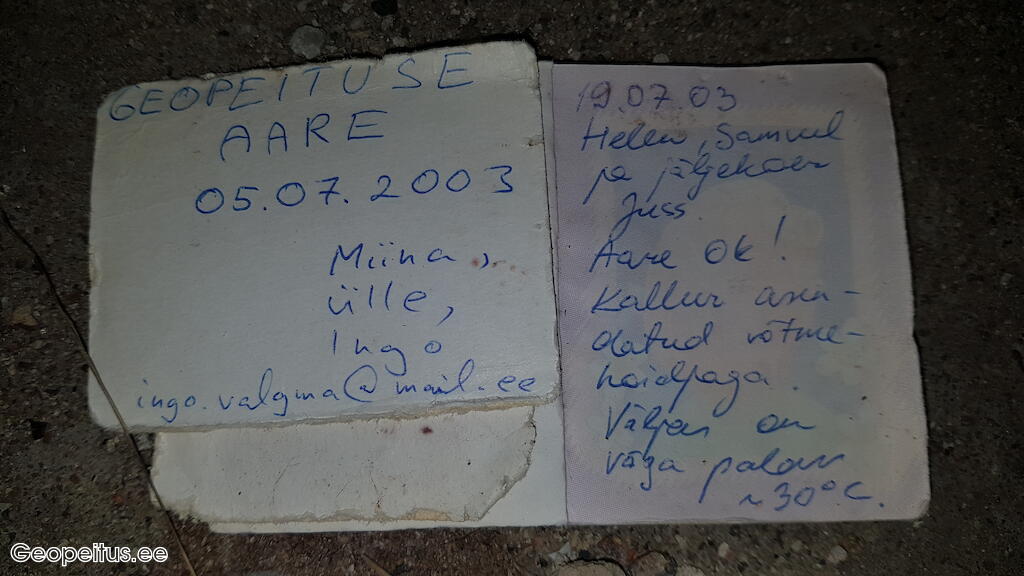 GEOPEITUSE
AARE
05.07.2003
Miina,
Ülle,
Ingo
ingo.valgma@mail.ee
19.07.03
Helen, Samuel
ja jäljekoer
Juss.
Aare OK!
Kallur asen-
datud võtme-
hoidjaga.
Väljas on
väga palav
~30°C.
Geopeitus.ee